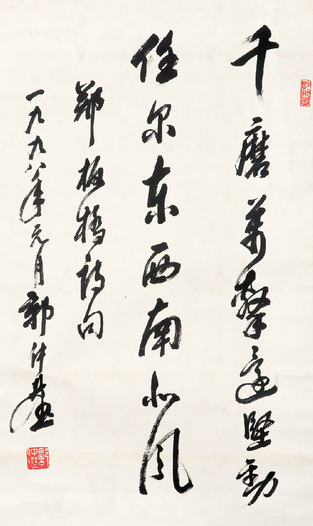 千磨萬擊還堅勁
任尔東西南北風
鄭板橋詩句
一九九八年元月郭仲選